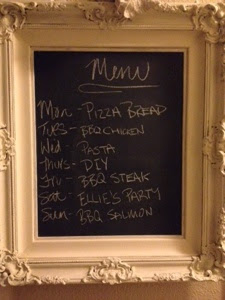 Menu
Mon - PIZZA BREAD
TUES - BBQ CHICKEN
Wed - PASTA
Thurs - DIY
Fri - BBQ STEAK
Sat - ELLIE'S PARTY
Sun - BBQ SALMON